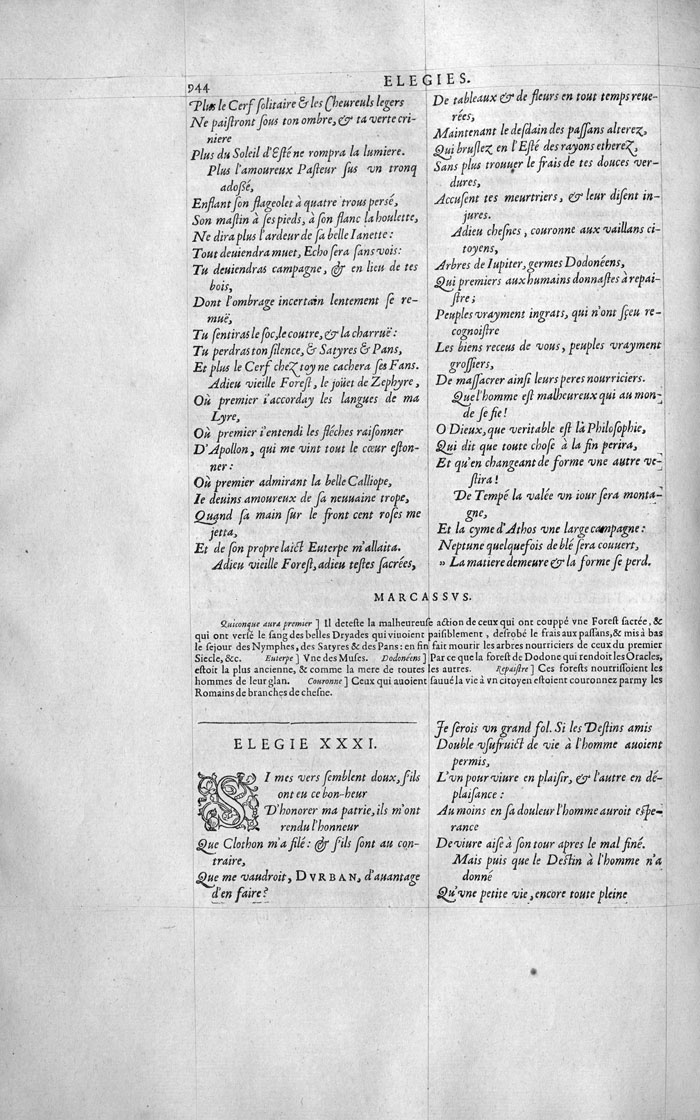 944
ELEGIES.
Plus le Cerf ſolitaire & les Cheureuls legers
Ne paiſtront ſous ton ombre, & ta verte cri-
niere
Plus du Soleil d'Eſté ne rompra la lumiere.
Plus l'amoureux Paſteur ſus vn tronq
adoßé,
Enflant ſon flageolet à quatre trous perſé,
Son maſtin à ſes pieds, à ſon flanc la houlette,
Ne dira plus l'ardeur de ſa belle Ianette:
Tout deuiendra muet, Echo ſera ſans vois:
Tu deuiendras campagne, & en lieu de tes
bois,
Dont l'ombrage incertain lentement ſe re-
muë,
Tu ſentiras le ſoc, le coutre, & la charruë:
Tu perdras ton ſilence, & Satyres & Pans,
Et plus le Cerf chez toy ne cachera ſes Fans.
Adieu vieille Foreſt, le joüet de Zephyre,
Où premier i'accorday les langues de ma
Lyre,
Où premier i'entendi les fléches raiſonner
D'Apollon, qui me vint tout le cœur eſton-
ner:
Où premier admirant la belle Calliope,
Ie deuins amoureux de ſa neuuaine trope,
Quand ſa main ſur le front cent roſes me
jetta,
Et de ſon propre laict Euterpe m'allaita.
Adieu vieille Foreſt, adieu teſtes ſacrées,
De tableaux & de fleurs en tout temps reue-
rées,
Maintenant le deſdain des paſſans alterez,
Qui bruſlez en l'Eſté des rayons etherez,
Sans plus trouuer le frais de tes douces ver-
dures,
Accuſent tes meurtriers, & leur diſent in-
jures.
Adieu cheſnes, couronne aux vaillans ci-
toyens,
Arbres de Iupiter, germes Dodonéens,
Qui premiers aux humains donnaſtes à repai-
ſtre;
Peuples vrayment ingrats, qui n'ont ſçeu re-
cognoiſtre
Les biens receus de vous, peuples vrayment
groſſiers,
De maſſacrer ainſi leurs peres nourriciers.
Que l'homme eſt malheureux qui au mon-
de ſe fie!
O Dieux, que veritable eſt la Philoſophie,
Qui dit que toute choſe à la fin perira,
Et qu'en changeant de forme vne autre ve-
ſtira!
De Tempé la valée vn iour ſera monta-
gne,
Et la cyme d'Athos vne large campagne:
Neptune quelquefois de blé ſera couuert,
» La matiere demeure & la forme ſe perd.
MARCASSVS.
Quiconque aura premier ] Il deteſte la malheureuſe action de ceux qui ont couppé vne Foreſt ſacrée, &
qui ont verſé le ſang des belles Dryades qui viuoient paiſiblement, deſrobé le frais aux paſſans, & mis à bas
le ſejour des Nymphes, des Satyres & des Pans: en fin fait mourir les arbres nourriciers de ceux du premier
Siecle, &c. Euterpe ] Vne des Muſes. Dodonéens ] Par ce que la foreſt de Dodone qui rendoit les Oracles,
eſtoit la plus ancienne, & comme la mere de toutes les autres. Repaiſtre ] Ces foreſts nourriſſoient les
hommes de leur glan. Couronne ] Ceux qui auoient ſauué la vie à vn citoyen eſtoient couronnez parmy les
Romains de branches de cheſne.
ELEGIE XXXI.
SI mes vers ſemblent doux, s'ils
ont eu ce bon-heur
D'honorer ma patrie, ils m'ont
rendu l'honneur
Que Clothon m'a filé: & s'ils ſont au con-
traire,
Que me vaudroit, DVRBAN, d'auantage
d'en faire?
Je ſerois vn grand fol. Si les Deſtins amis
Double vſufruict de vie à l'homme auoient
permis,
L'vn pour viure en plaiſir, & l'autre en dé-
plaiſance:
Au moins en ſa douleur l'homme auroit eſpe-
rance
De viure aiſe à ſon tour apres le mal finé.
Mais puis que le Deſtin à l'homme n'a
donné
Qu'vne petite vie, encore toute pleine